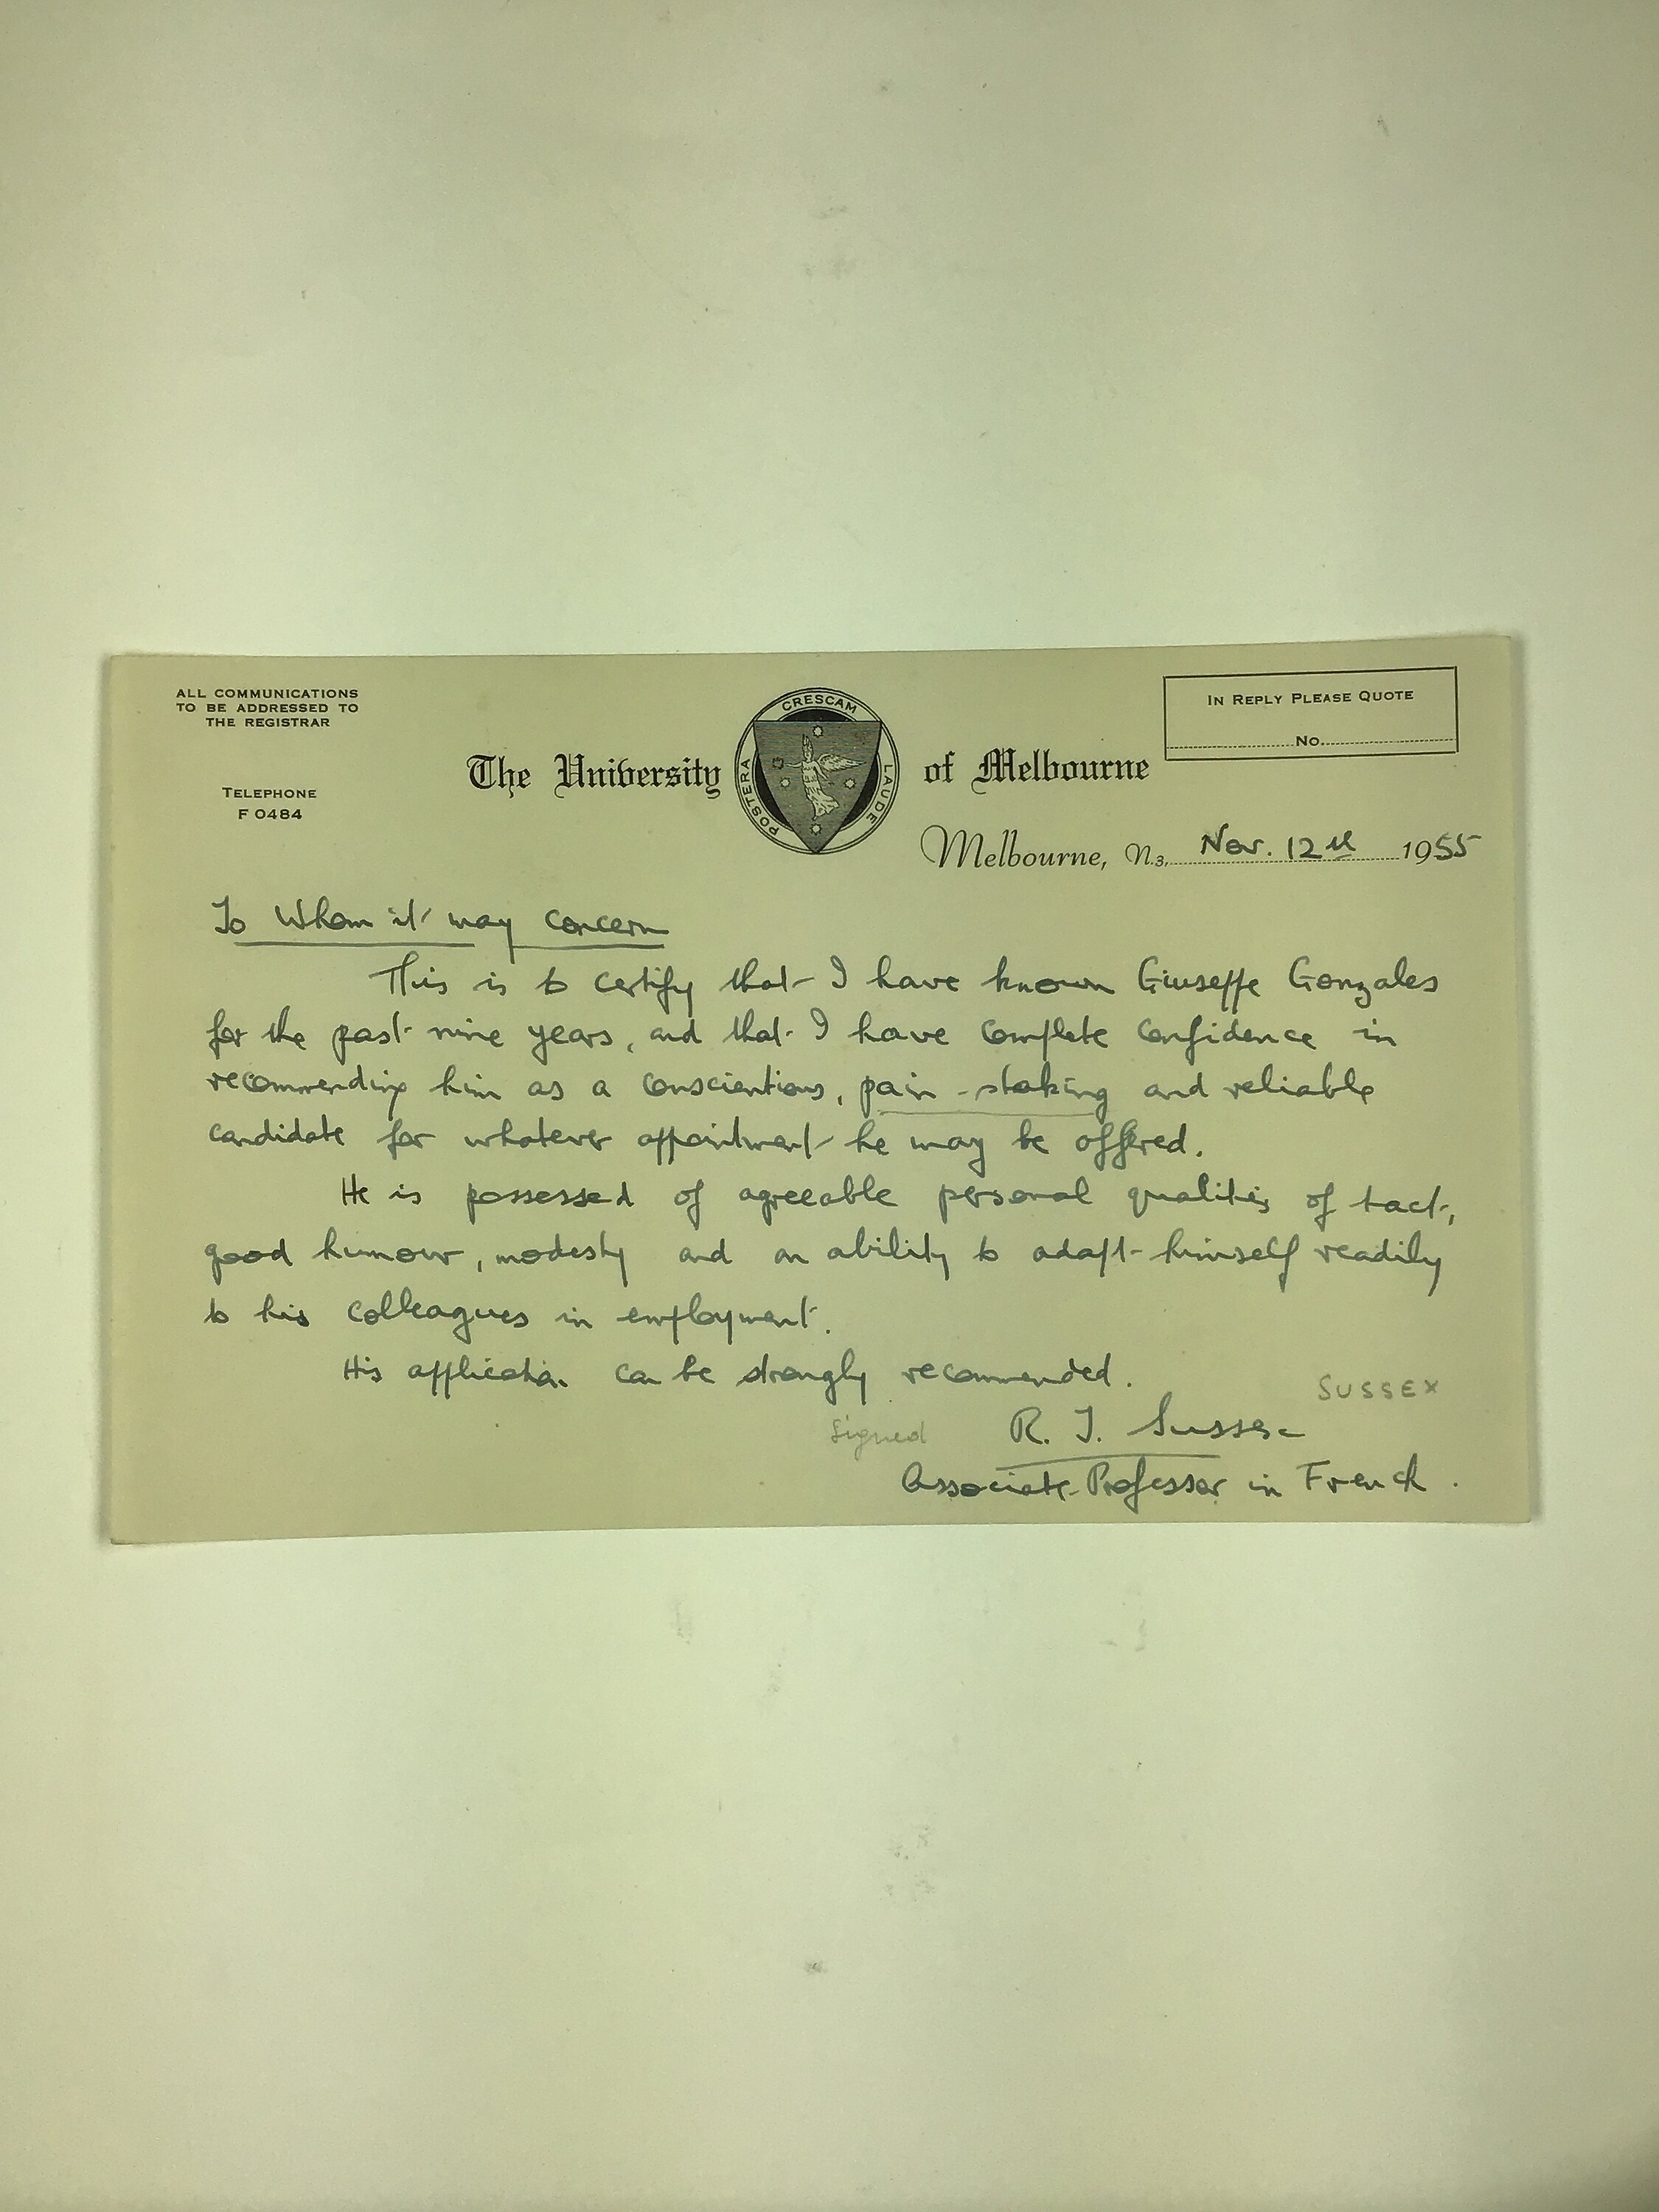 ALL COMMUNICATIONS
TO BE ADDRESSED TO
THE REGISTRAR
TELEPHONE
F 0484
The University of Melbourne
POSTERA CRESCAM LAUDE
IN REPLY PLEASE QUOTE
No.
Melbourne, N.3. Nov. 12th 1955
To Whom it may concern
This is to certify that I have known Giuseppe Gonzales
for the past nine years, and that I have complete confidence in
recommending him as a conscientious, pain-staking and reliable
candidate for whatever appointment he may be offered.
He is possessed of agreeable personal qualities of tact,
good humour, modesty and an ability to adapt himself readily
to his colleagues in employment.
His application can be strongly recommended.
SUSSEX
Signed R. T. Sussex
Associate-Professor in French.